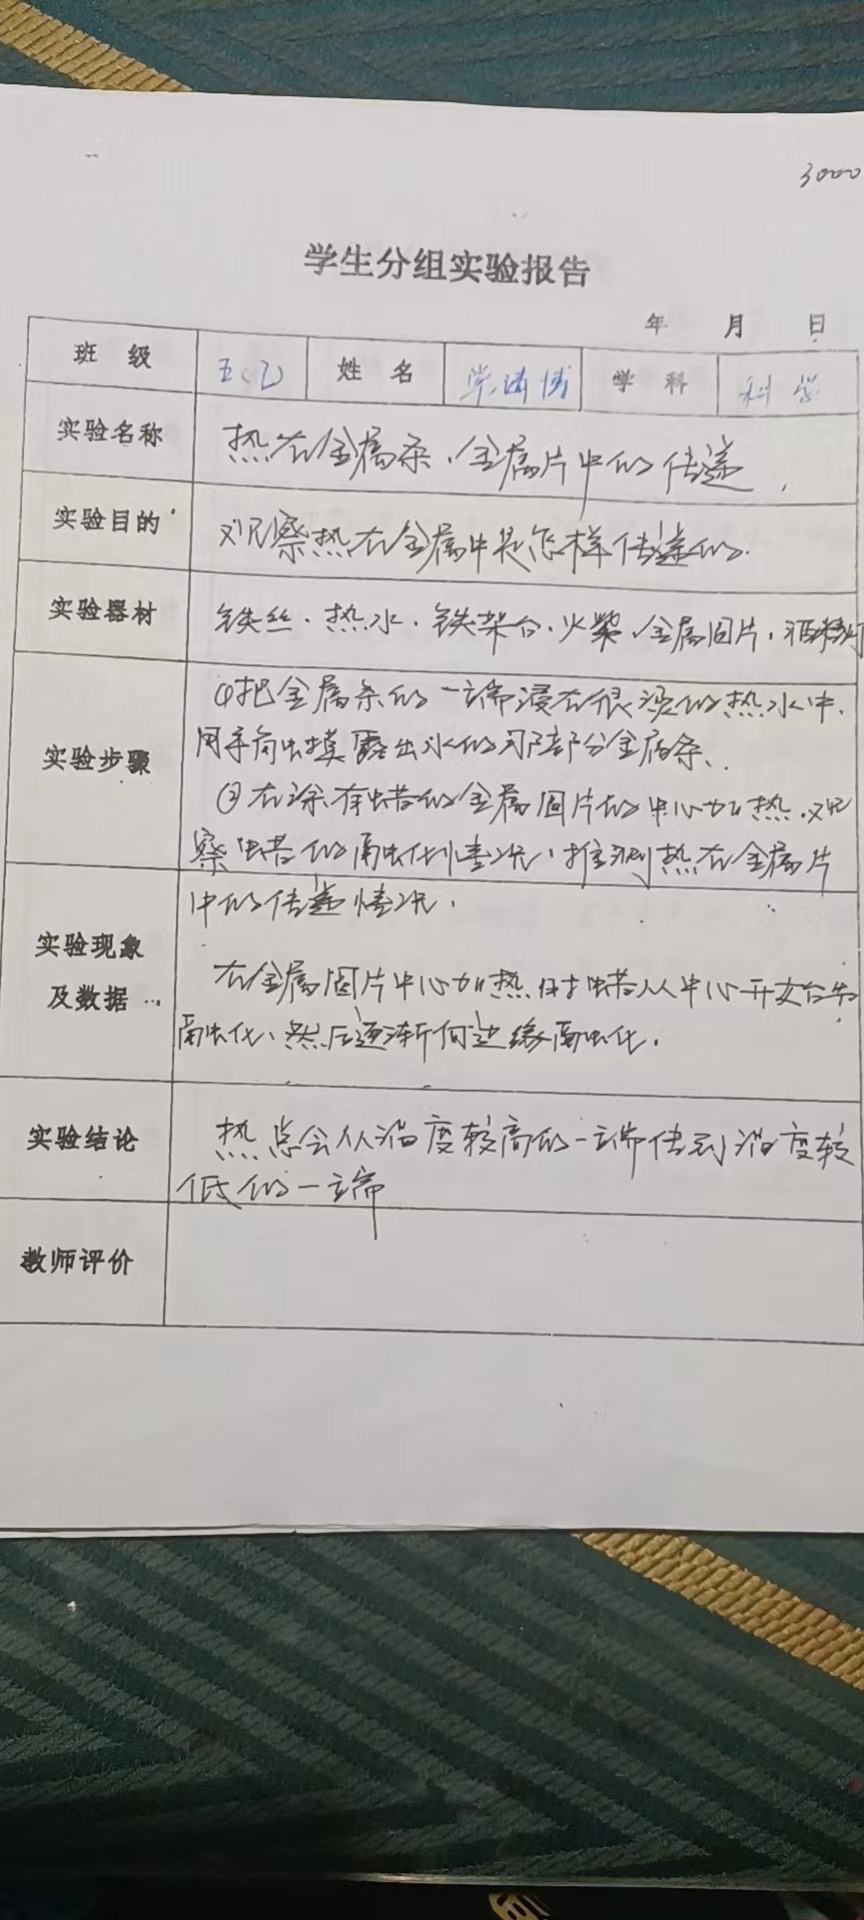 3000
学生分组实验报告
年 月 日
班级 五(乙) 姓名 博 学科 科学
实验名称 热在金属条、金属片中的传递.
实验目的 观察热在金属中是怎样传递的.
实验器材 铁丝、热水、铁架台、火柴、金属圆片、酒精灯
实验步骤 ①把金属条的一端浸在很烫的热水中,
用手触摸露出水的那部分金属条、
②在涂有蜡的金属圆片的中心加热,观
察蜡的融化情况,推测热在金属片
中的传递情况.
实验现象及数据 在金属圆片中心加热时蜡从中心开始先
融化、然后逐渐向边缘融化.
实验结论 热总会从温度较高的一端传到温度较
低的一端
教师评价